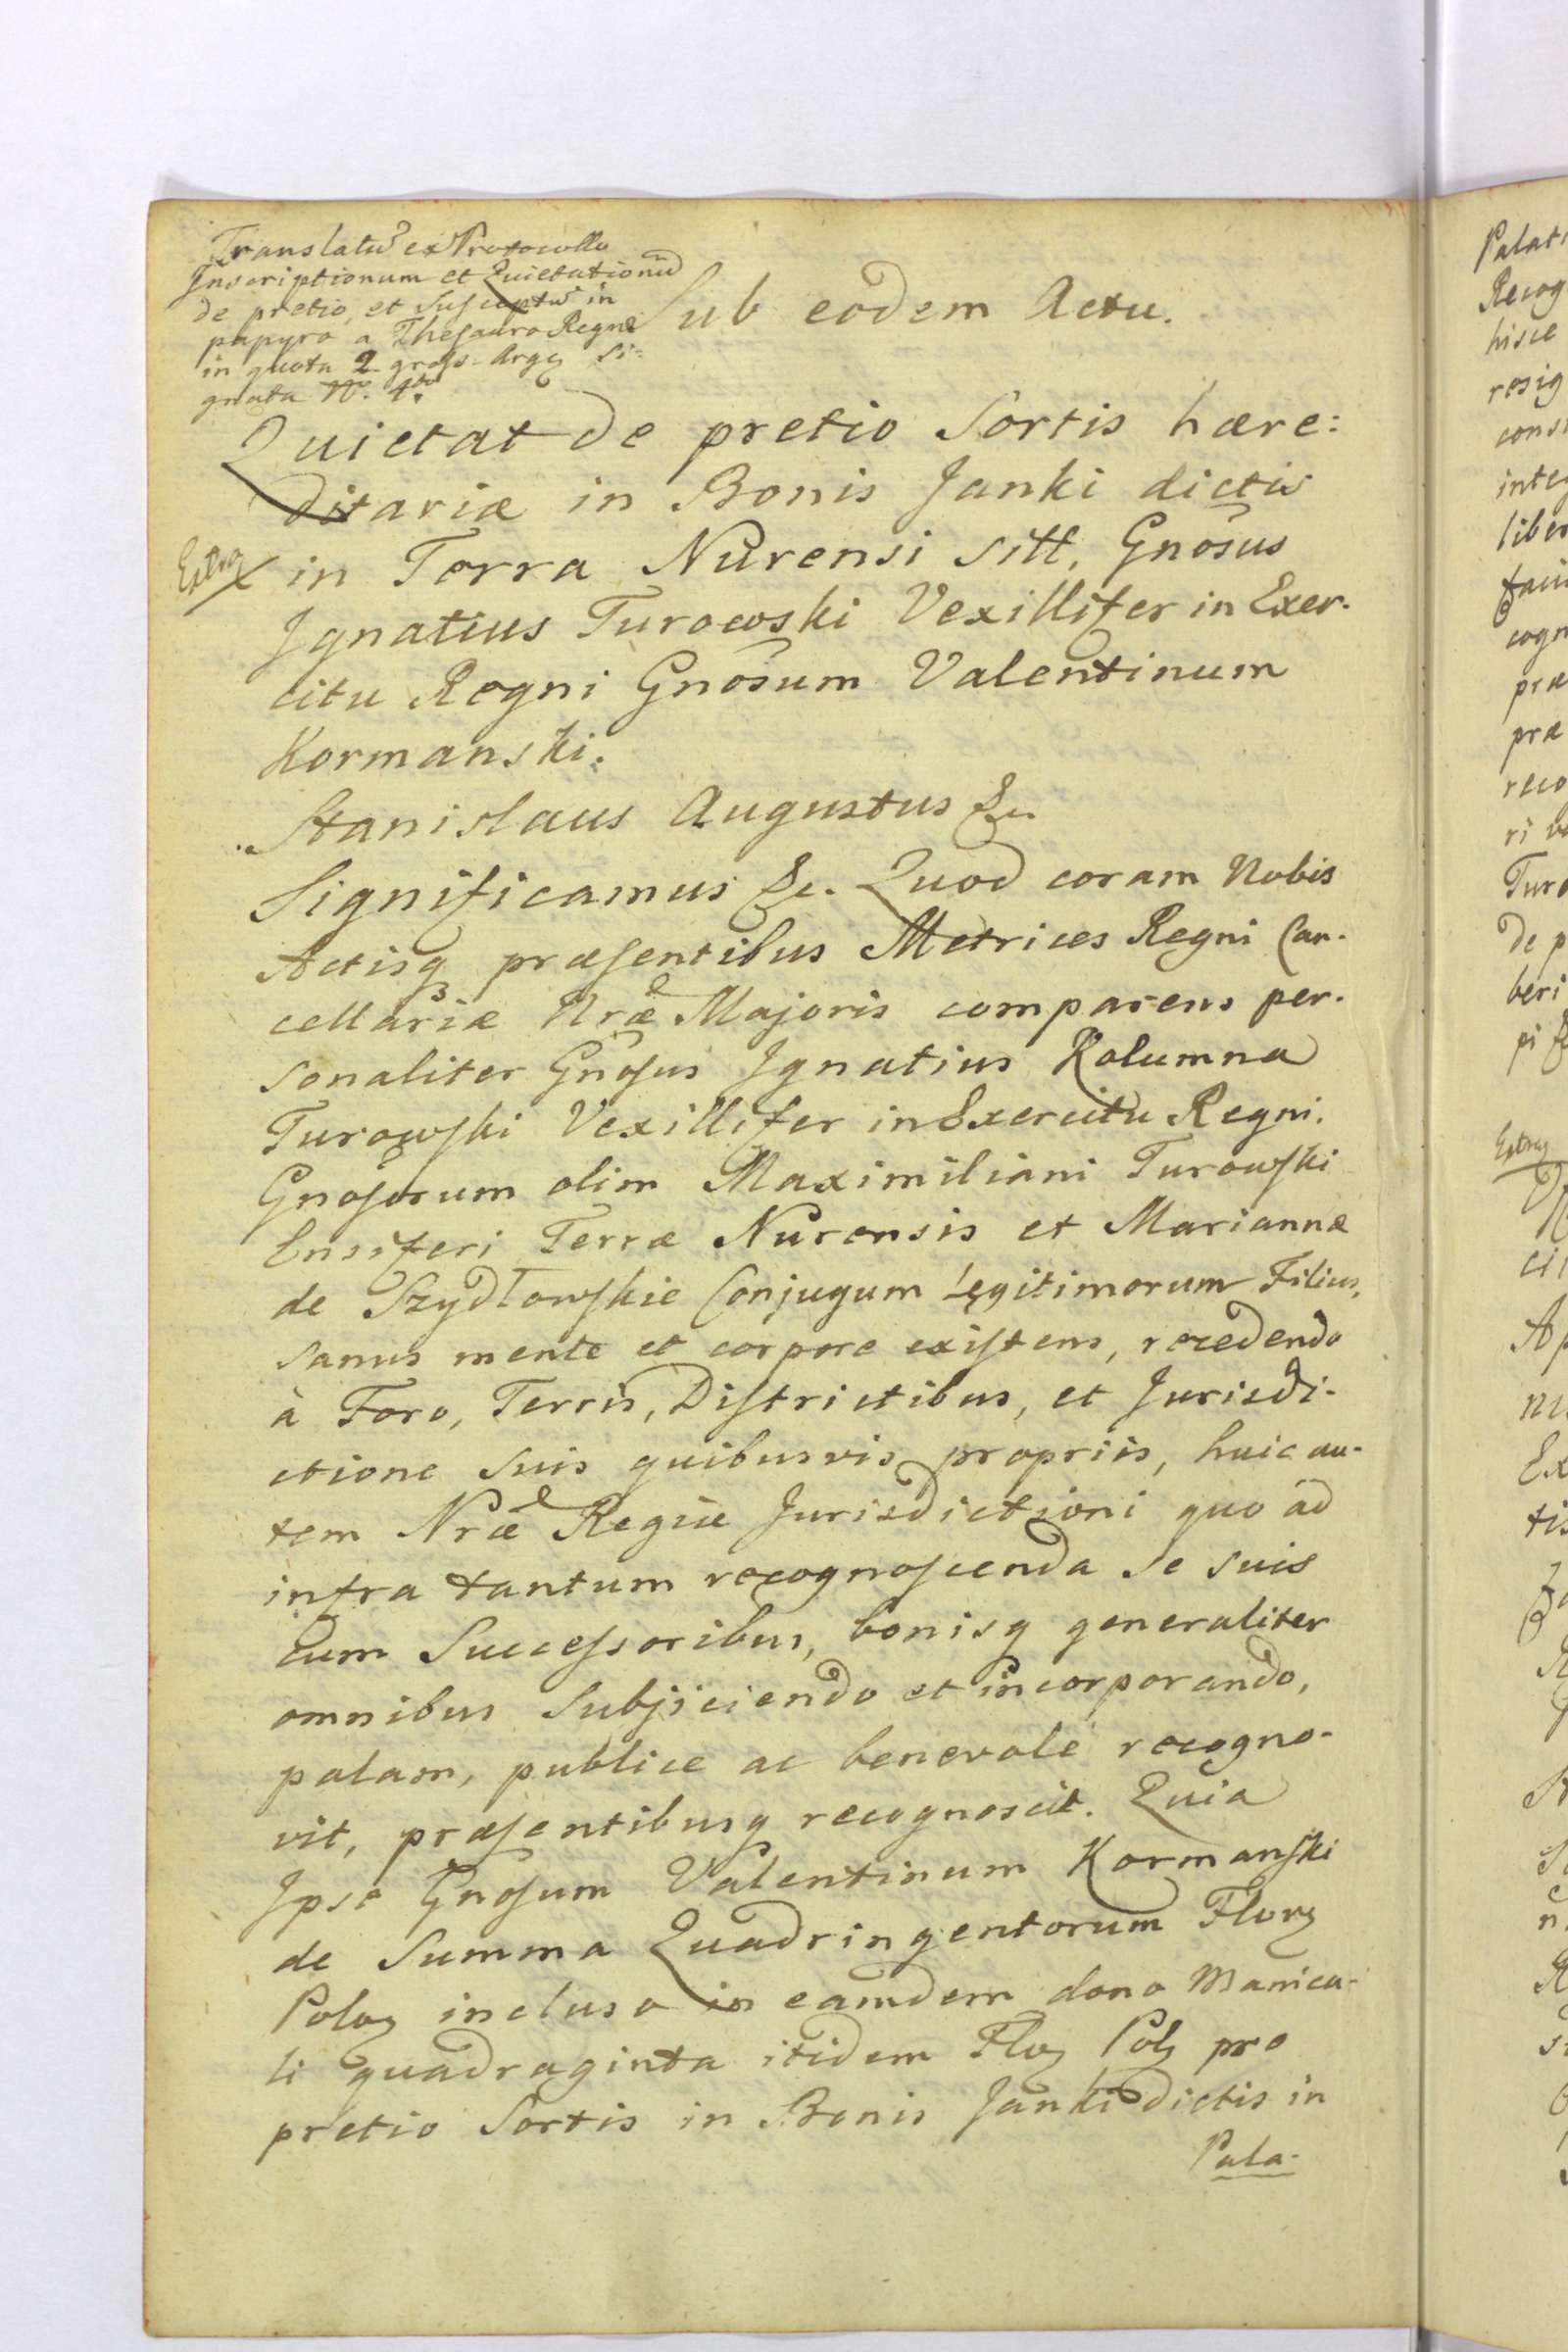 Translatũ ex Protocollo
Inscriptionum et Quietationũ
de pretio, et Susceptũ in
papyro a Thesauro Regni
in quota 2 gross. Argẽ Si=
gnata Nº. 4to.
Sub eodem Actu.
Quietat de pretio Sortis hære:
ditariæ in Bonis Janki dictis
Extra
in Terra Nurensi sitt, Gnõsus
Ignatius Turowski Vexillifer in Exer-
citu Regni Gnõsum Valentinum
Kormanski.
Stanislaus Augustus &c.
Significamus &c. Quod coram Nobis
Actisq præsentibus Metrices Regni Can-
cellariæ Nræ Majoris comparens per-
sonaliter Gnõsus Ignatius Kolumna
Turowski Vexillifer in Exercitu Regni.
Gnosorum olim Maximiliani Turowski
Ensiferi Terræ Nurensis et Mariannæ
de Szydłowskie Conjugum Legitimorum Filius,
sanus mente et corpore existens, recedendo
à Foro, Terris, Districtibus, et Jurisdi-
ctione suis quibusvis propriis, huic au-
tem Nræ Regiæ Jurisdictioni quo ad
infra tantum recognoscenda se suis
cum Successoribus, bonisq generaliter
omnibus Subjiciendo et incorporando,
palam, publice ac benevole recogno-
vit, præsentibusq recognoscit. Quia
Ipse Gnõsum Valentinum Kormanski
de Summa Quadringentorum Florz
Poloz incluso in eamdem dono Manica-
li quadraginta itidem Floz Polz pro
pretio Sortis in Bonis Janki dictis in
Pala-
Palati
Recog
hisce
resig
cons
integ
liber
faci
cogn
præ
præ
reco
ri
Turo
de p
beri
pi
Extra
ci
Ap
Ex
tis